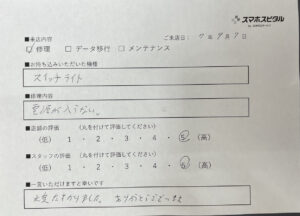 スマホスピタル
■来店内容
ご来店日： 7 年 9 月 7 日
☑ 修理　□ データ移行　□ メンテナンス
■お持ち込みいただいた機種
スイッチライト
■修理内容
電源が入らない。
■店舗の評価　（丸を付けて評価してください）
（低） 1 ・ 2 ・ 3 ・ 4 ・ ⑤ （高）
■スタッフの評価　（丸を付けて評価してください）
（低） 1 ・ 2 ・ 3 ・ 4 ・ ⑤ （高）
■一言いただけますと幸いです
大変たすかりました。ありがとうございます